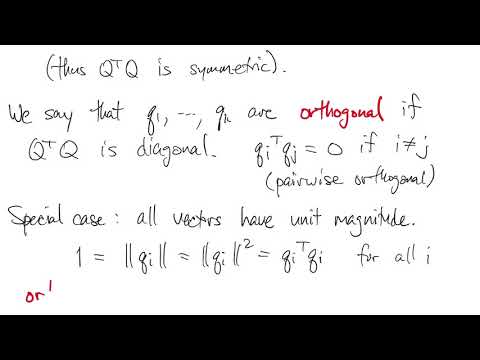 (thus QᵀQ is symmetric).
We say that q₁, ..., qₖ are orthogonal if
QᵀQ is diagonal. qᵢᵀqⱼ = 0 if i≠j
(pairwise orthogonal)
Special case: all vectors have unit magnitude.
1 = ‖qᵢ‖ = ‖qᵢ‖² = qᵢᵀqᵢ for all i
or'